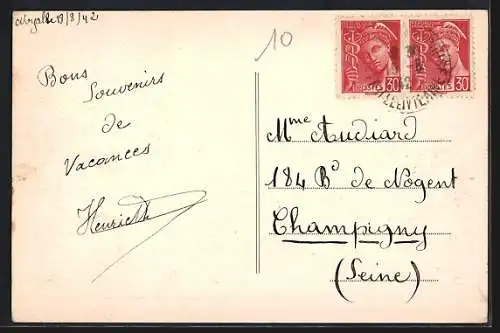 13/8/42
10
Bons
Souvenirs
de
Vacances
Henriette
30
POSTES
30
POSTES
Mme Audiard
184 Bd de Nogent
Champigny
(Seine)